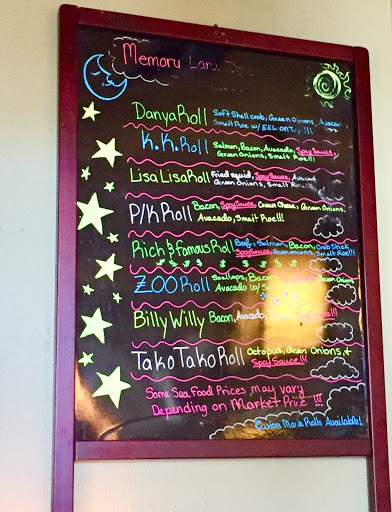 Memory Lane
Danya Roll Soft Shell crab, Green Onions, Avocado,
Smelt Roe w/ EEL ON IT!!!
K.K. Roll Salmon, Bacon, Avocado, Spicy Sauce,
Green Onions, Smelt Roe!!!
Lisa Lisa Roll Fried Squid, Spicy Sauce, Avocado
Green Onions, Smelt
P/K Roll Bacon, Spicy Sauce, Cream Cheese, Green Onions,
Avocado, Smelt Roe!!!
Rich & Famous Roll Beef, Salmon, Bacon, Crab Stick
Spicy Sauce, Green Onions, Smelt Roe!!!
ZOO Roll Scallops, Bacon, Green Onions
Avocado w/
Billy Willy Bacon, Avocado,
Tako Tako Roll Octopus, Green Onions, +
Spicy Sauce!!!
Some Sea Food Prices may vary
Depending on Market Price !!!
Custom Made Rolls Available!